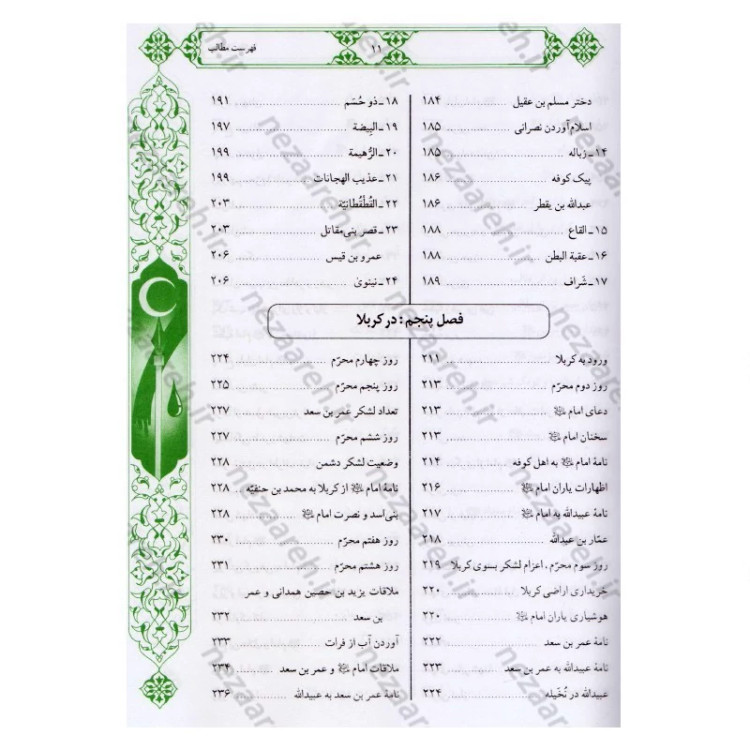 فهرست مطالب
۱۱
دختر مسلم بن عقیل ۱۸۴
اسلام‌آوردن نصرانی ۱۸۵
۱۴ـ زباله ۱۸۵
پیک کوفه ۱۸۶
عبدالله بن یقطر ۱۸۶
۱۵ـ القاع ۱۸۸
۱۶ـ عقبة البطن ۱۸۸
۱۷ـ شَراف ۱۸۹
۱۸ـ ذو حُسَم ۱۹۱
۱۹ـ البِیضة ۱۹۷
۲۰ـ الرُّهیمة ۱۹۹
۲۱ـ عذیب الهجانات ۱۹۹
۲۲ـ القُطْقُطانِیّة ۲۰۳
۲۳ـ قصر بنی‌مقاتل ۲۰۳
عمرو بن قیس ۲۰۶
۲۴ـ نینوی ۲۰۶
فصل پنجم: در کربلا
ورود به کربلا ۲۱۱
روز دوم محرّم ۲۱۳
دعای امام ﷺ ۲۱۳
سخنان امام ﷺ ۲۱۳
نامهٔ امام ﷺ به اهل کوفه ۲۱۴
اظهارات یاران امام ﷺ ۲۱۶
نامهٔ عبیدالله به امام ﷺ ۲۱۷
عمّار بن عبدالله ۲۱۸
روز سوم محرّم، اعزام لشکر بسوی کربلا ۲۱۹
خریداری اراضی کربلا ۲۲۰
هوشیاری یاران امام ﷺ ۲۲۰
نامهٔ عمر بن سعد ۲۲۲
نامهٔ عبیدالله به عمر بن سعد ۲۲۳
عبیدالله در نُخَیله ۲۲۴
روز چهارم محرّم ۲۲۴
روز پنجم محرّم ۲۲۵
تعداد لشکر عمر بن سعد ۲۲۷
روز ششم محرّم ۲۲۷
وضعیت لشکر دشمن ۲۲۸
نامهٔ امام ﷺ از کربلا به محمد بن حنفیّه ۲۲۸
بنی‌اسد و نصرت امام ﷺ ۲۲۸
روز هفتم محرّم ۲۳۰
روز هشتم محرّم ۲۳۱
ملاقات یزید بن حصین همدانی و عمر
بن سعد ۲۳۲
آوردن آب از فرات ۲۳۳
ملاقات امام ﷺ و عمر بن سعد ۲۳۴
نامهٔ عمر بن سعد به عبیدالله ۲۳۶
nezaareh.ir